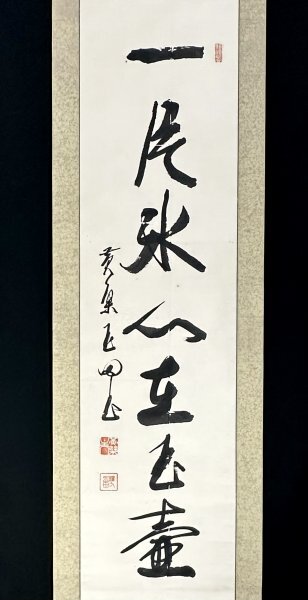 一片冰心在玉壺
黄檗